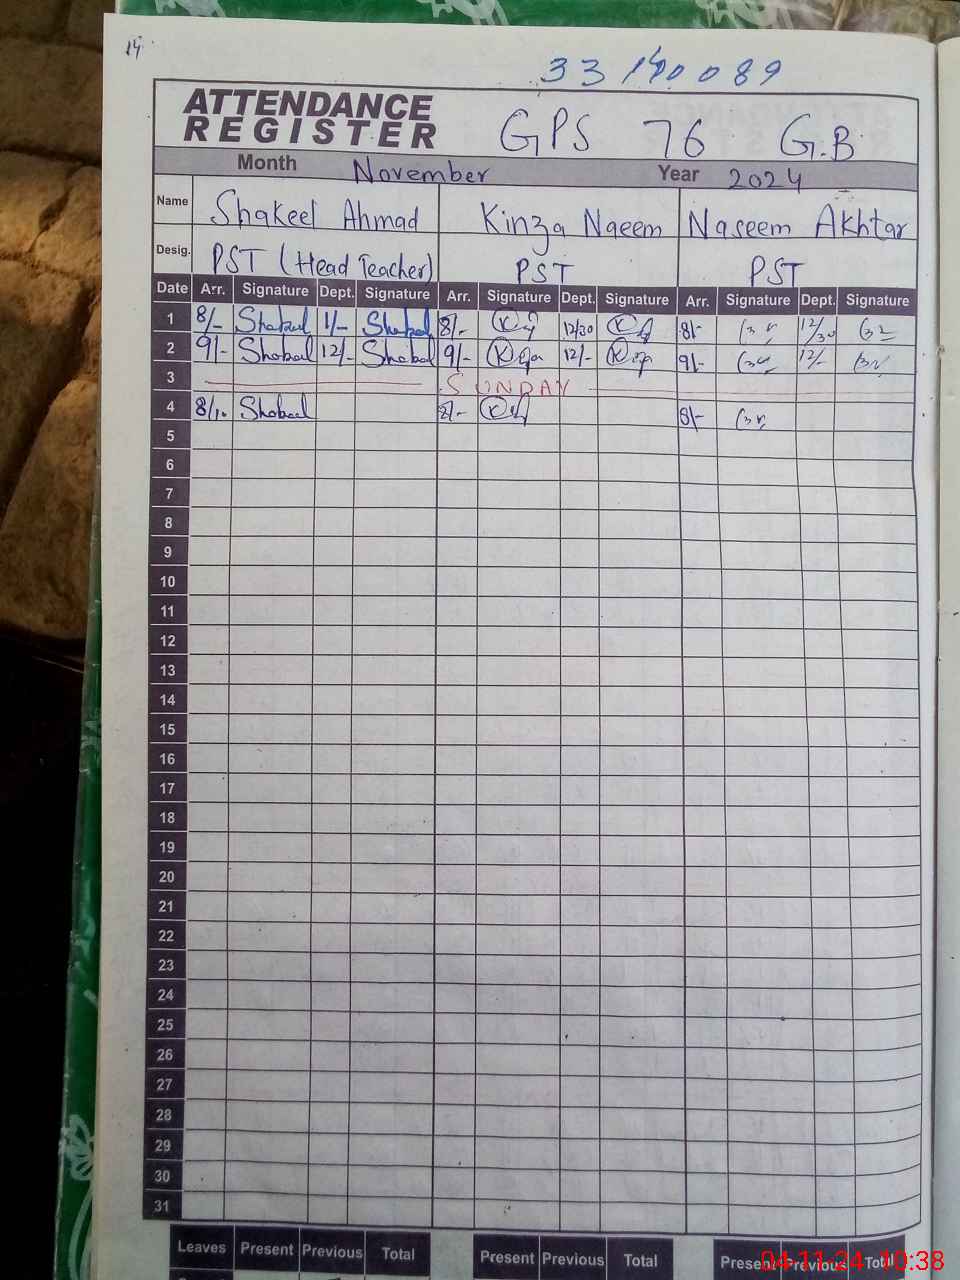 14
ATTENDANCE
REGISTER
GPS 76 G.B
Month November Year 2024
Name Shakeel Ahmad Kinza Naeem Naseem Akhtar
Desig. PST (Head Teacher) PST PST
Date Arr. Signature Dept. Signature Arr. Signature Dept. Signature Arr. Signature Dept. Signature
1 8/- Shakeel 1/- Shakeel 8/- 12/30 8/- 12/30
2 9/- Shakeel 12/- Shakeel 9/- 12/- 9/- 12/-
3 SUNDAY
4 8/10 Shakeel 8/- 8/-
5
6
7
8
9
10
11
12
13
14
15
16
17
18
19
20
21
22
23
24
25
26
27
28
29
30
31
Leaves Present Previous Total Present Previous Total Present Previous Total
04-11-24 10:38